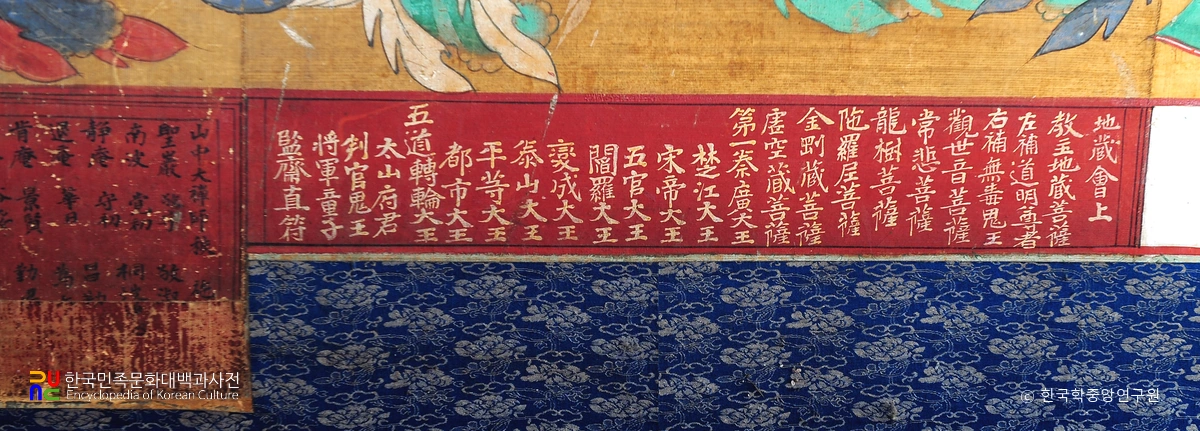 地蔵會上
教主地蔵菩薩
左補道明尊者
右補無毒鬼王
觀世音菩薩
常悲菩薩
龍樹菩薩
陁羅尼菩薩
金剛蔵菩薩
虛空蔵菩薩
第一秦廣大王
楚江大王
宋帝大王
五官大王
閻羅大王
変成大王
泰山大王
平等大王
都市大王
五道轉輪大王
太山府君
判官鬼王
將軍童子
監齋直符
山中大禪師
聖巖
南波
靜庵
한국민족문화대백과사전
Encyclopedia of Korean Culture
(c) 한국학중앙연구원